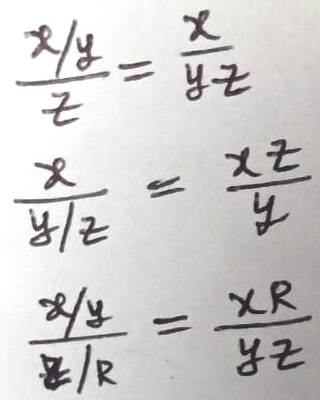 x/y / z = x / yz
x / y/z = xz / y
x/y / z/R = xR / yz